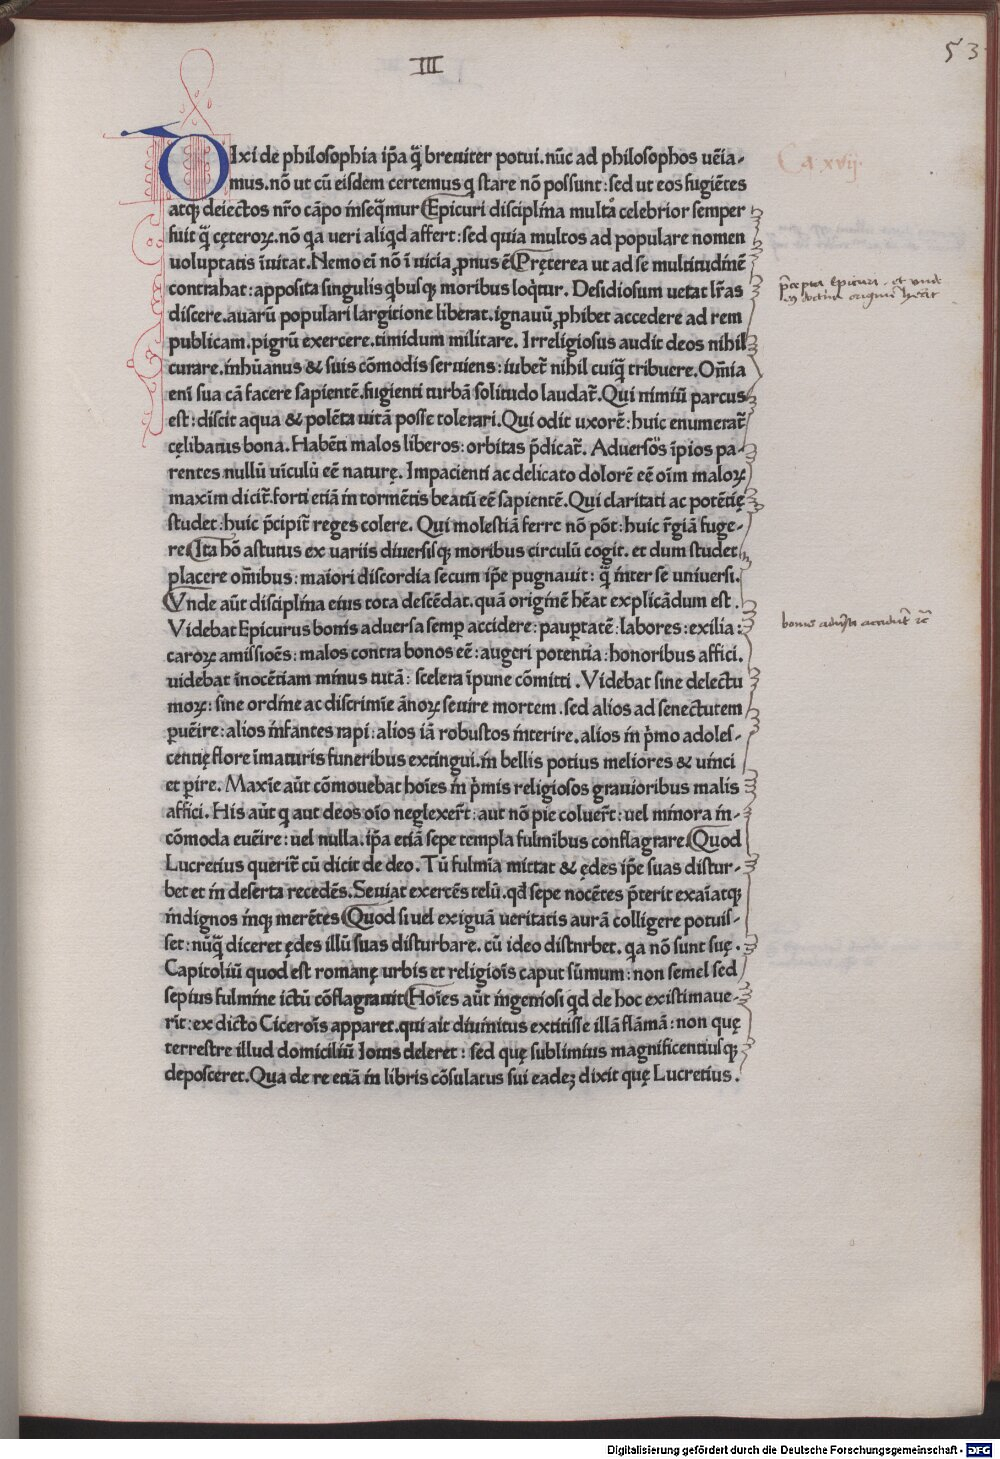 III
53
Ca. xvij.
DIxi de philosophia ip̄a q̄ breuiter potui. nūc ad philosophos uēia-
mus. nō ut cū eisdem certemus q stare nō possunt: sed ut eos fugiētes
atq; deiectos nr̄o cāpo inseq̄mur Epicuri disciplina multo celebrior semper
fuit q̄ cęteroꝝ. nō qa ueri aliqd affert: sed quia multos ad populare nomen
uoluptatis īuitat. Nemo ei nō ī uicia ꝓnus ē Pręterea ut ad se multitudinē
contrahat: apposita singulis qbusq; moribus loq̄tur. Desidiosum uetat lr̄as
discere. auarū populari largitione liberat. ignauū ꝓhibet accedere ad rem
publicam. pigrū exercere. timidum militare. Irreligiosus audit deos nihil
curare. inhūanus & suis cōmodis seruiens: iubet̄ nihil cuiq̄ tribuere. Om̄ia
eni sua cā facere sapientē. fugienti turbā solitudo laudat̄. Qui nimiū parcus
est: discit aqua & polēta uitā posse tolerari. Qui odit uxorē: huic enumerat̄
cęlibatus bona. Habēti malos liberos: orbitas p̄dicat̄. Aduersꝰ īpios pa-
rentes nullū uīculū eē naturę. Impacienti ac delicato dolorē eē oīm maloꝝ
maxim dicit̄. forti etiā in tormētis beatū eē sapientē. Qui claritati ac potētię
studet: huic p̄cipit̄ reges colere. Qui molestiā ferre nō pōt: huic r̄giā fuge-
re Ita hō astutus ex uariis diuersisq; moribus circulū cogit. et dum studet
placere om̄ibus: maiori discordia secum ip̄e pugnauit: q̄ inter se uniuersi.
Vnde aūt disciplina eius tota descēdat. quā originē hēat explicādum est.
Videbat Epicurus bonis aduersa semꝑ accidere: pauꝑtatē: labores: exilia:
caroꝝ amissioēs: malos contra bonos eē: augeri potentia: honoribus affici.
uidebat īnocētiam minus tutā: scelera īpune cōmitti. Videbat sine delectu
moꝝ: sine ordine ac discrimīe ānoꝝ seuire mortem. sed alios ad senectutem
puēire: alios infantes rapi: alios iā robustos interire. alios in p̄mo adoles-
centię flore īmaturis funeribus extingui. in bellis potius meliores & uinci
et ꝑire. Maxīe aūt cōmouebat hoīes in p̄mis religiosos grauioribus malis
affici. His aūt q aut deos oīo neglexer̄t: aut nō pie coluer̄t: uel minora in-
cōmoda euēire: uel nulla. ip̄a etiā sepe templa fulmībus conflagrare. Quod
Lucretius querit̄ cū dicit de deo. Tū fulmīa mittat & ędes ip̄e suas distur-
bet et in deserta recedēs. Seuiat exercēs telū. qd̄ sepe nocētes p̄terit exaīatq;
indignos inq; merētes Quod si uel exiguā ueritatis aurā colligere potuis-
set: nūq̄ diceret ędes illū suas disturbare. cū ideo disturbet. qa nō sunt suę.
Capitoliū quod est romanę urbis et religioīs caput sūmum: non semel sed
sepius fulmine ictū cōflagrauit Hoīes aūt ingeniosi qd de hoc existimaue-
rīt: ex dicto Ciceroīs apparet. qui ait diuinitus extitisse illā flāmā: non quę
terrestre illud domiciliū Iouis deleret: sed quę sublimius magnificentiusq;
deposceret. Qua de re etiā in libris cōsulatus sui eadeꝫ dixit quę Lucretius.
p̄cepta Epicuri. et unde
originē hēat
bonis aduersa accidūt
Digitalisierung gefördert durch die Deutsche Forschungsgemeinschaft - DFG